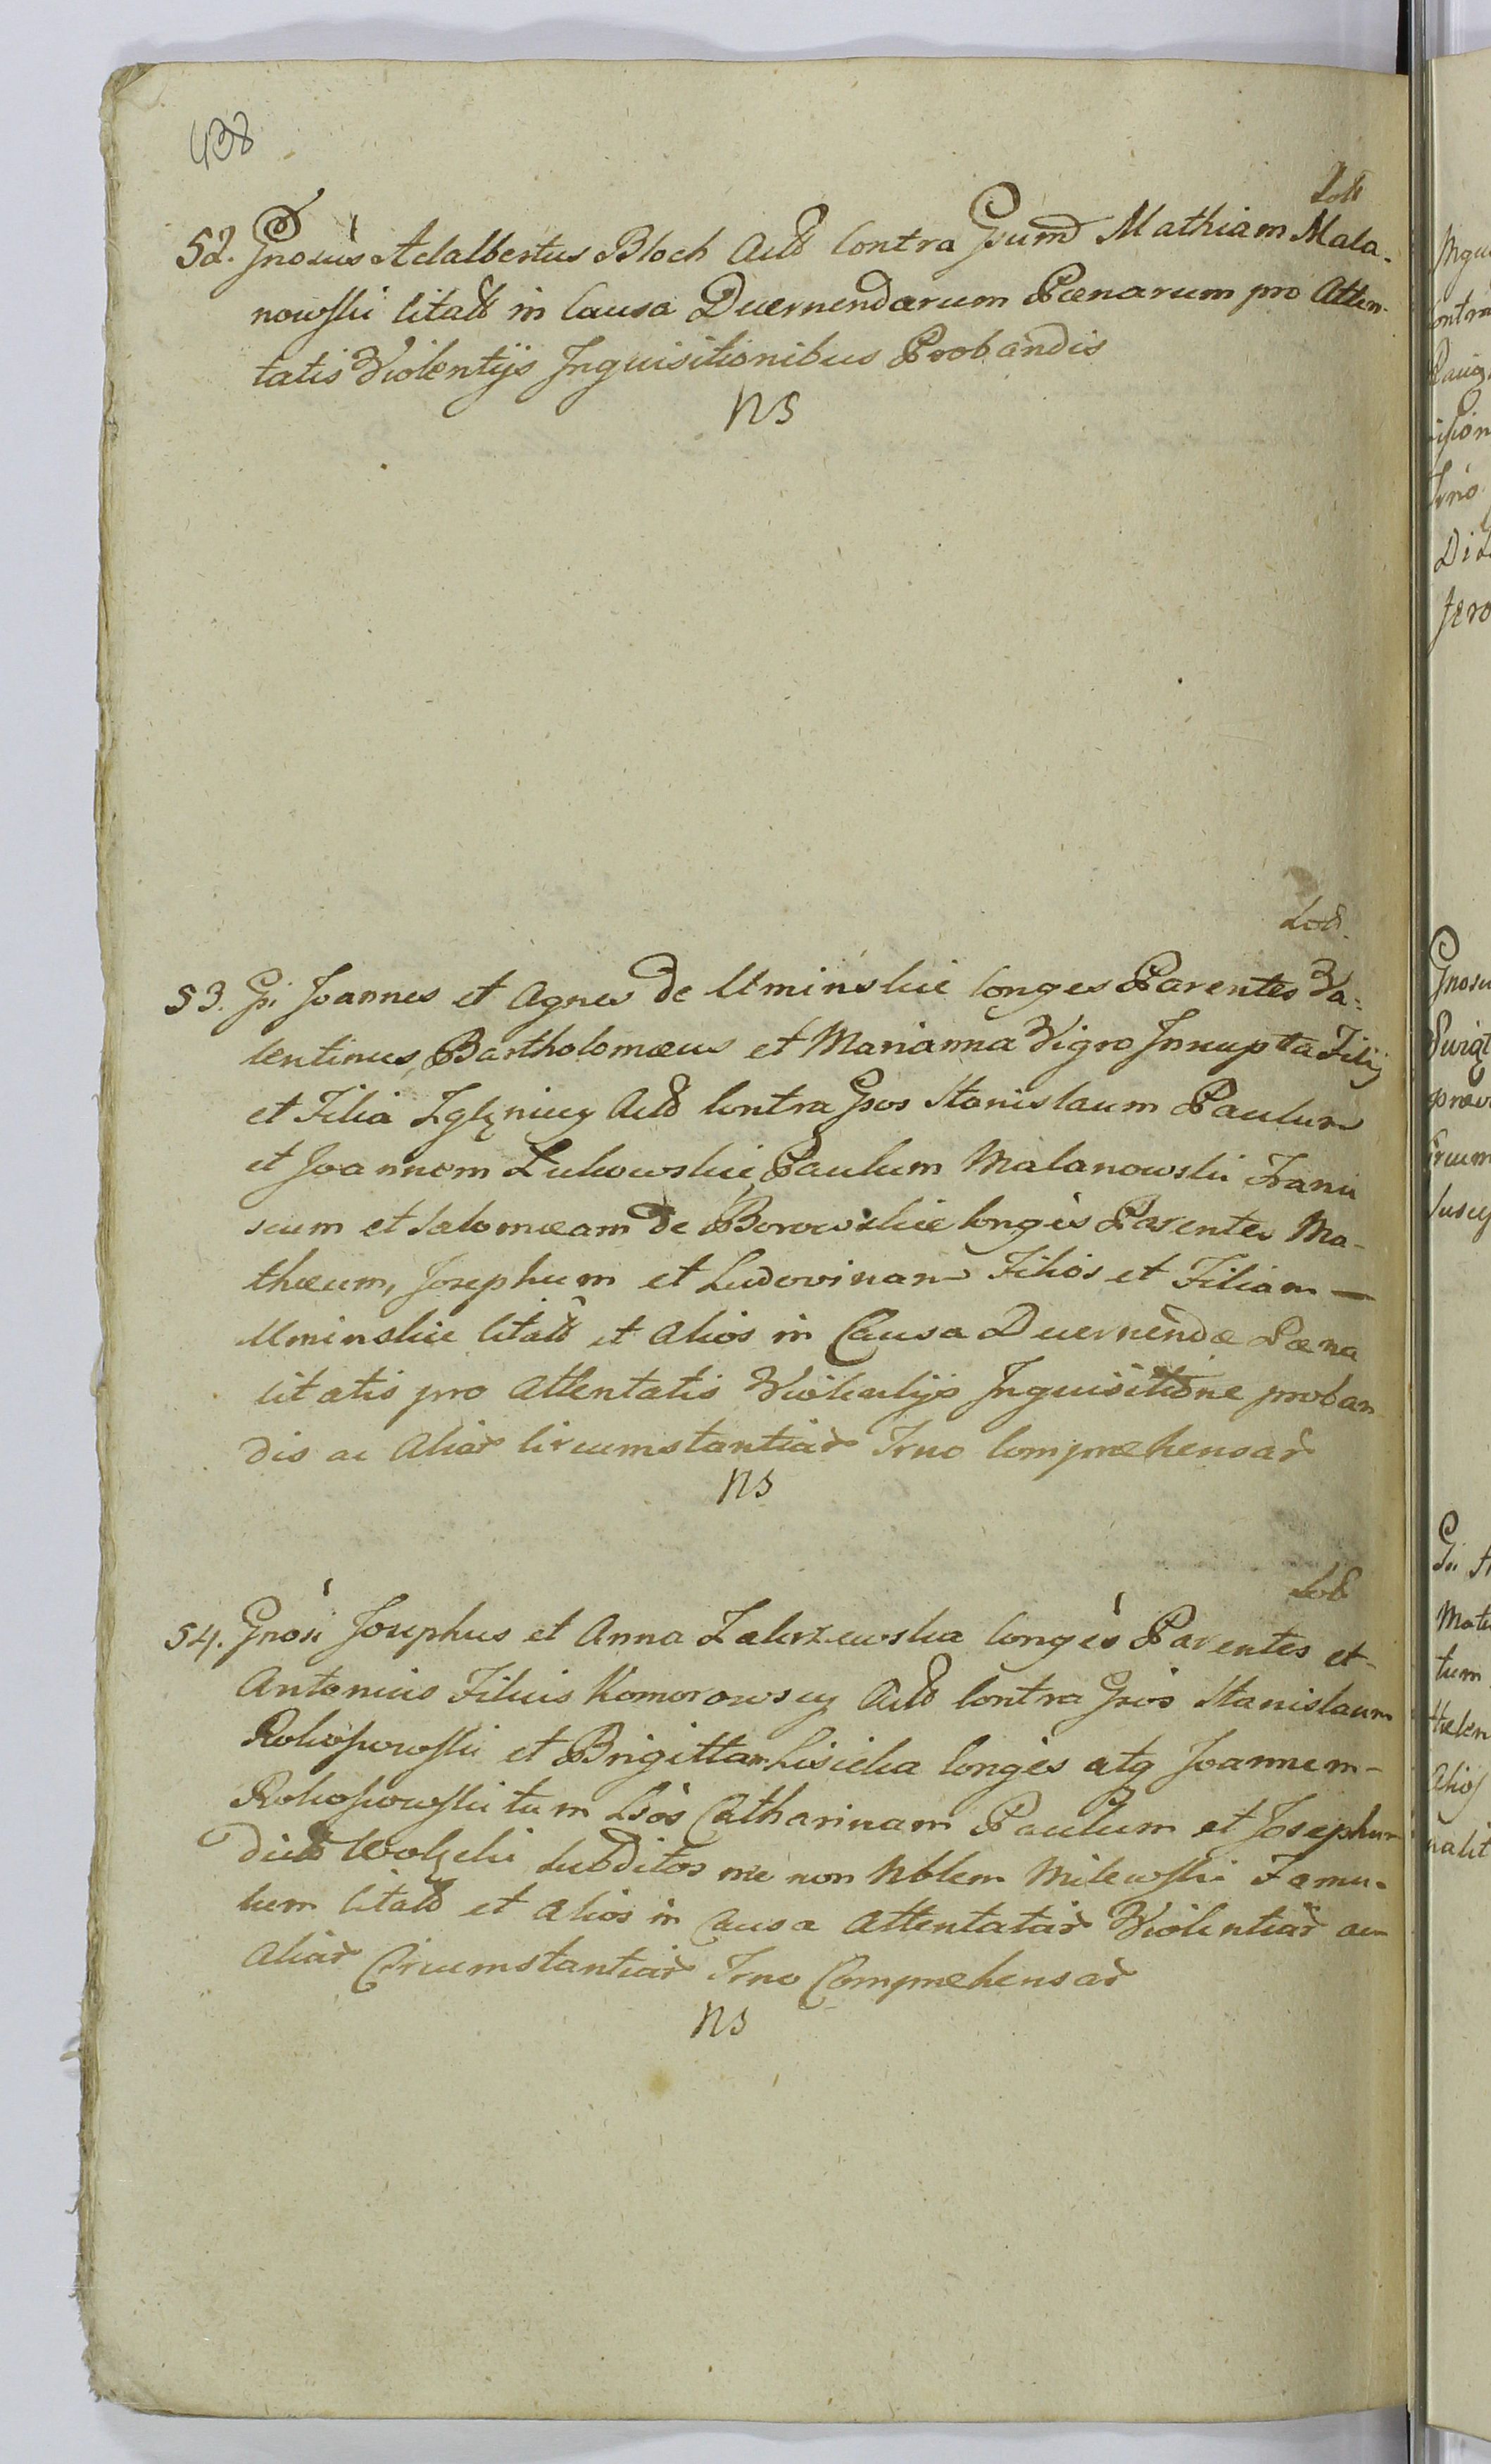 438
52. Gnosus Adalbertus Bloch Actt Contra Gsum Mathiam Mala-
nowski Citatt in Causa Decernendarum Pœnarum pro Atten-
tatis Violentijs Inquisitionibus Probandis
NS
53. Gsi Joannes et Agnes de Uminskie Conges Parentes Va-
lentinus, Bartholomæus et Marianna Virgo Innupta Filij
et Filia Zglęnicy Actt Contra Gsos Stanislaum Paulum
et Joannem Łukowskie, Paulum Malanowski Franci
scum et Salomæam de Borowskie Conges Parentes Ma-
thæum, Josephum et Ludovinam Filios et Filiam —
Uminskie Citatt et Alios in Causa Decernendæ Pœna
litatis pro Attentatis Violentijs Inquisitione proban
dis ac Aliar Circumstantiar Trno Compræhensar
NS
54. Gnosi Josephus et Anna Zakrzewska Conges Parentes et
Antonius Filius Komorowscy Actt Contra Gsos Stanislaum
Rokossowski et Brigittam Lisicka Conges atq Joannem-
Rokossowski tum Lsos Catharinam Paulum et Josephum
dict Subditos nec non Nblem Milewski Famu-
lum Citatt et Alios in Causa Attentatar Violentiar ac
Aliar Circumstantiar Trno Compræhensar
NS